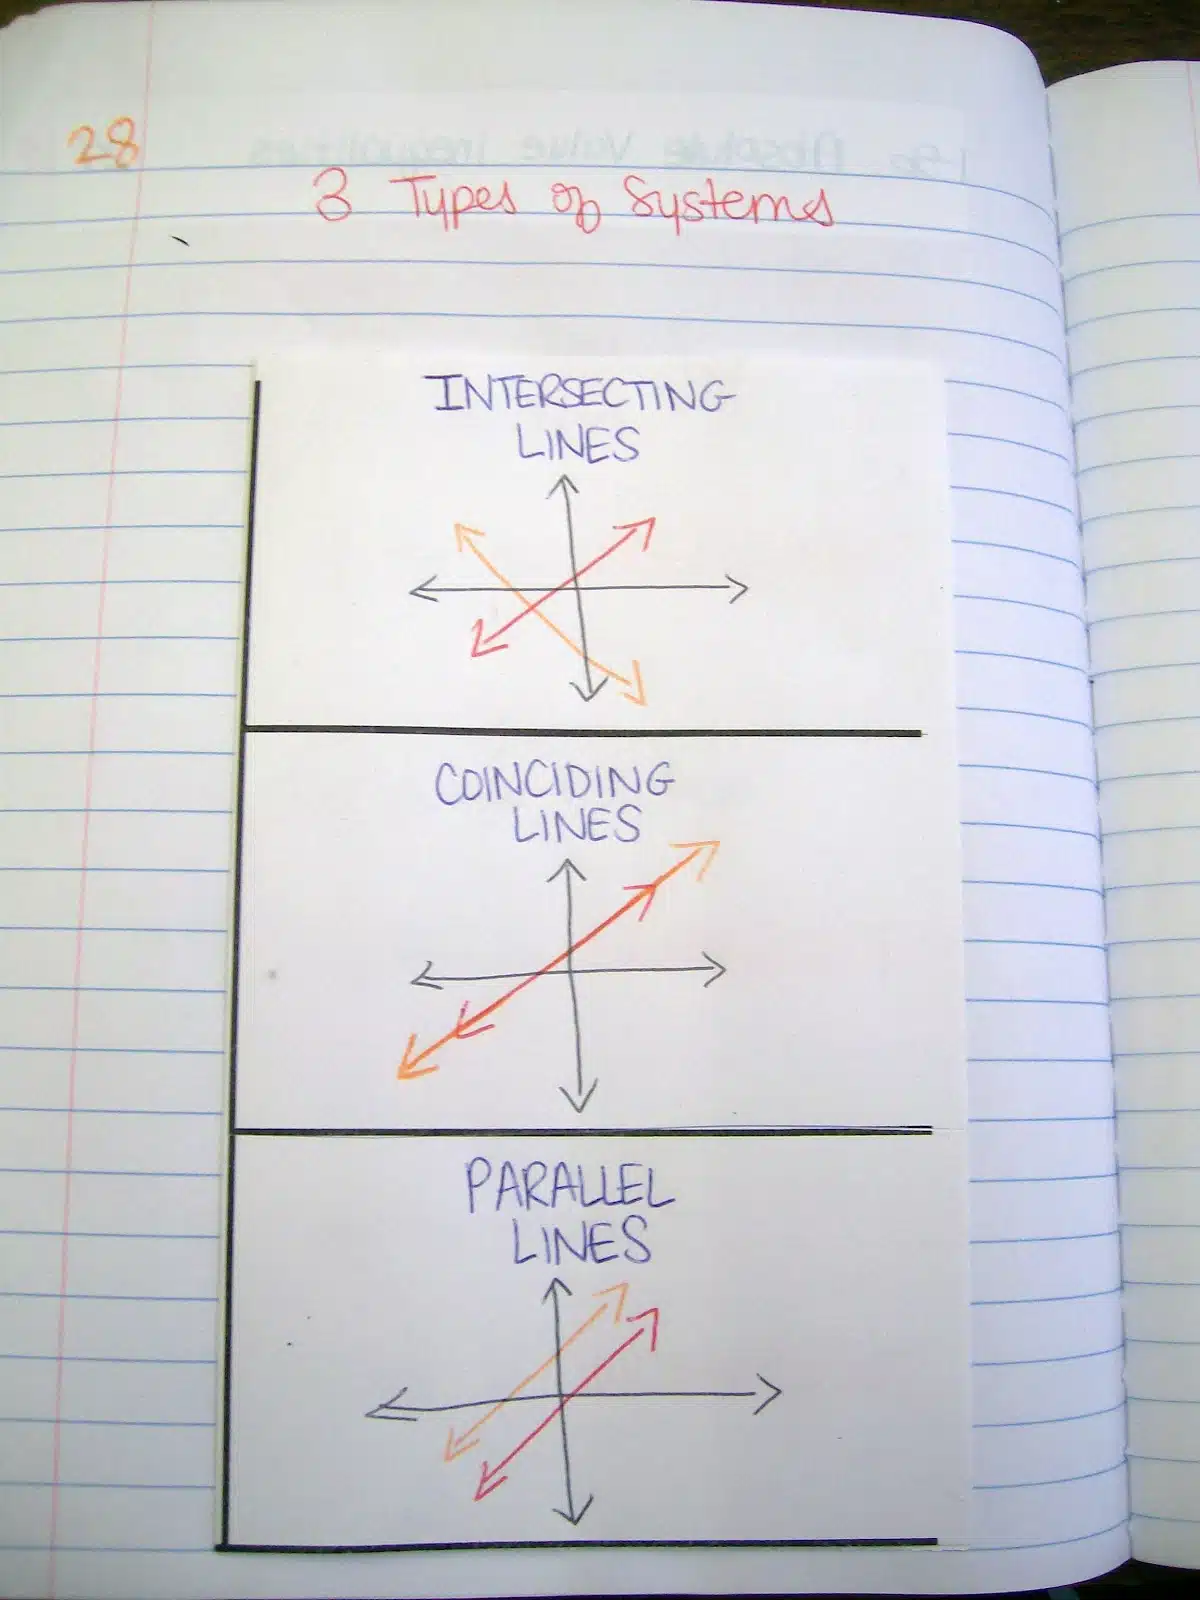 28
3 Types of Systems
INTERSECTING
LINES
COINCIDING
LINES
PARALLEL
LINES